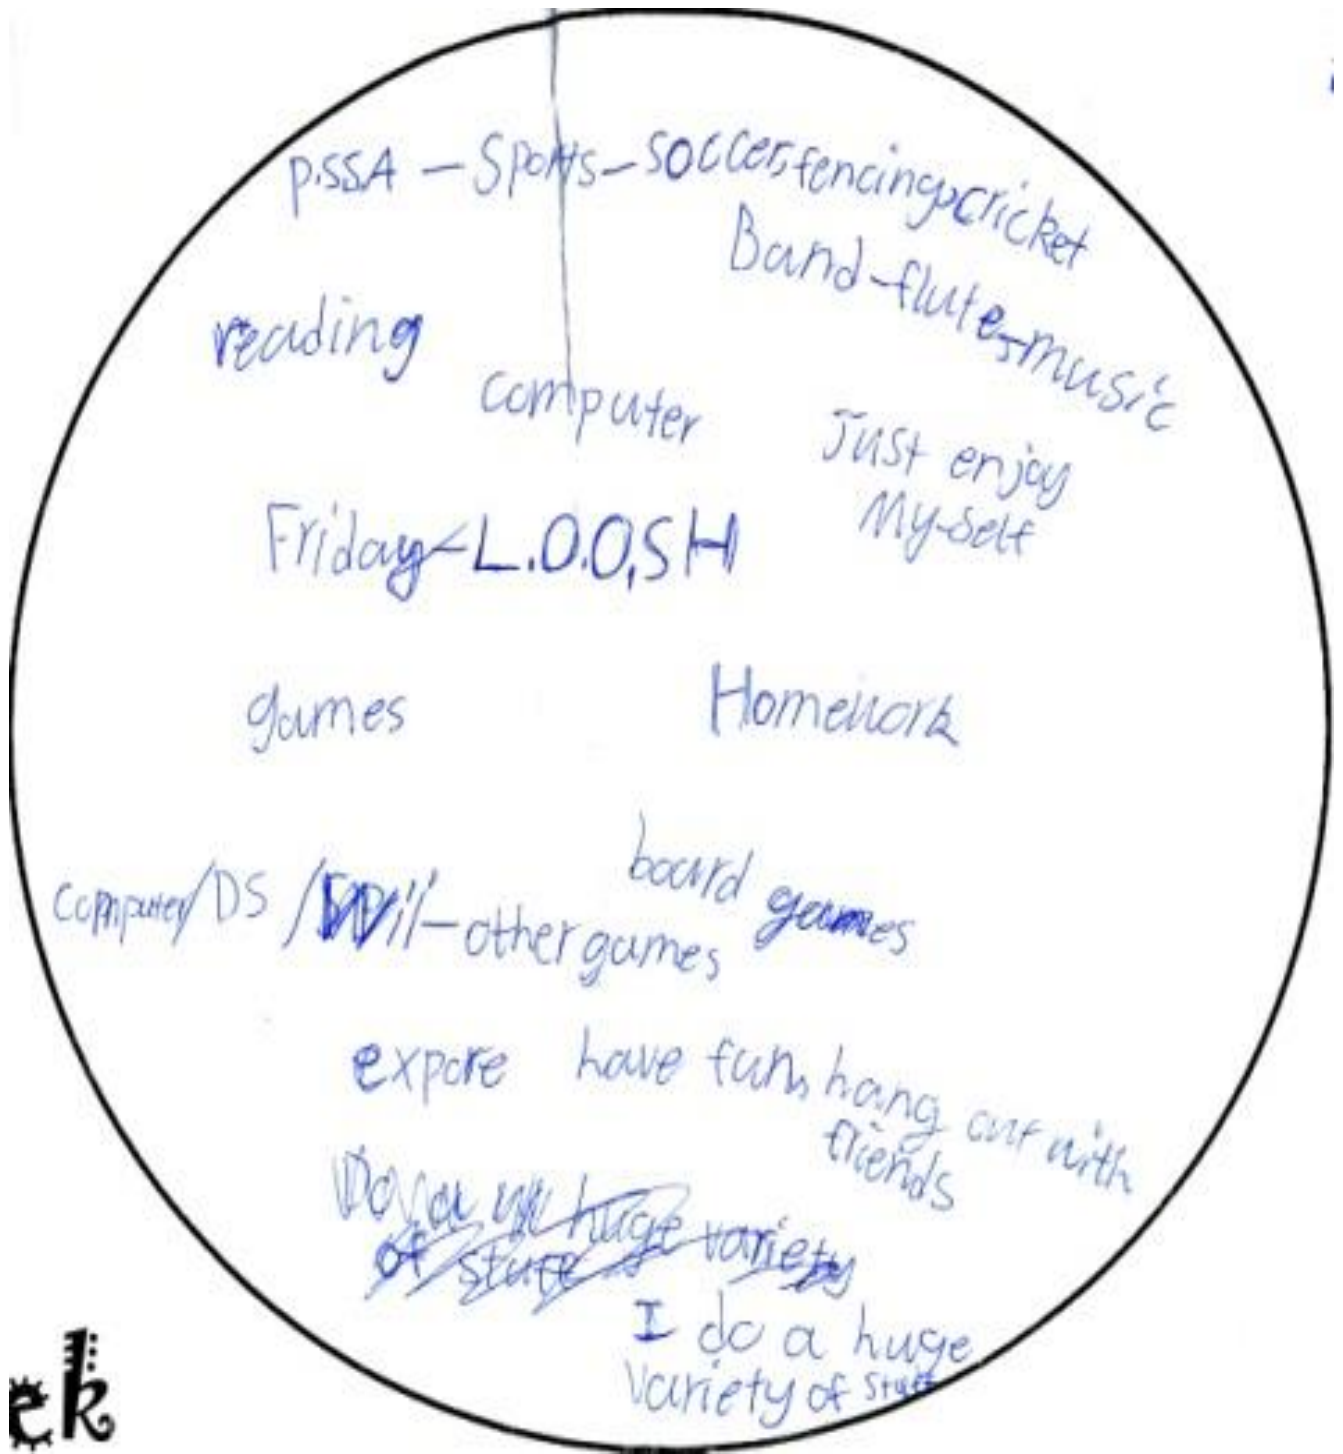 P.SSA - Sports - soccer, fencing, cricket
Band - flute, - music
reading
computer
Just enjoy
My-self
Friday - L.O.O.SH
games
Homework
board games
computer/DS /Wii - other games
expore have fun, hang out with
friends
Do a huge variety
of stuff
I do a huge
variety of stuff
ek